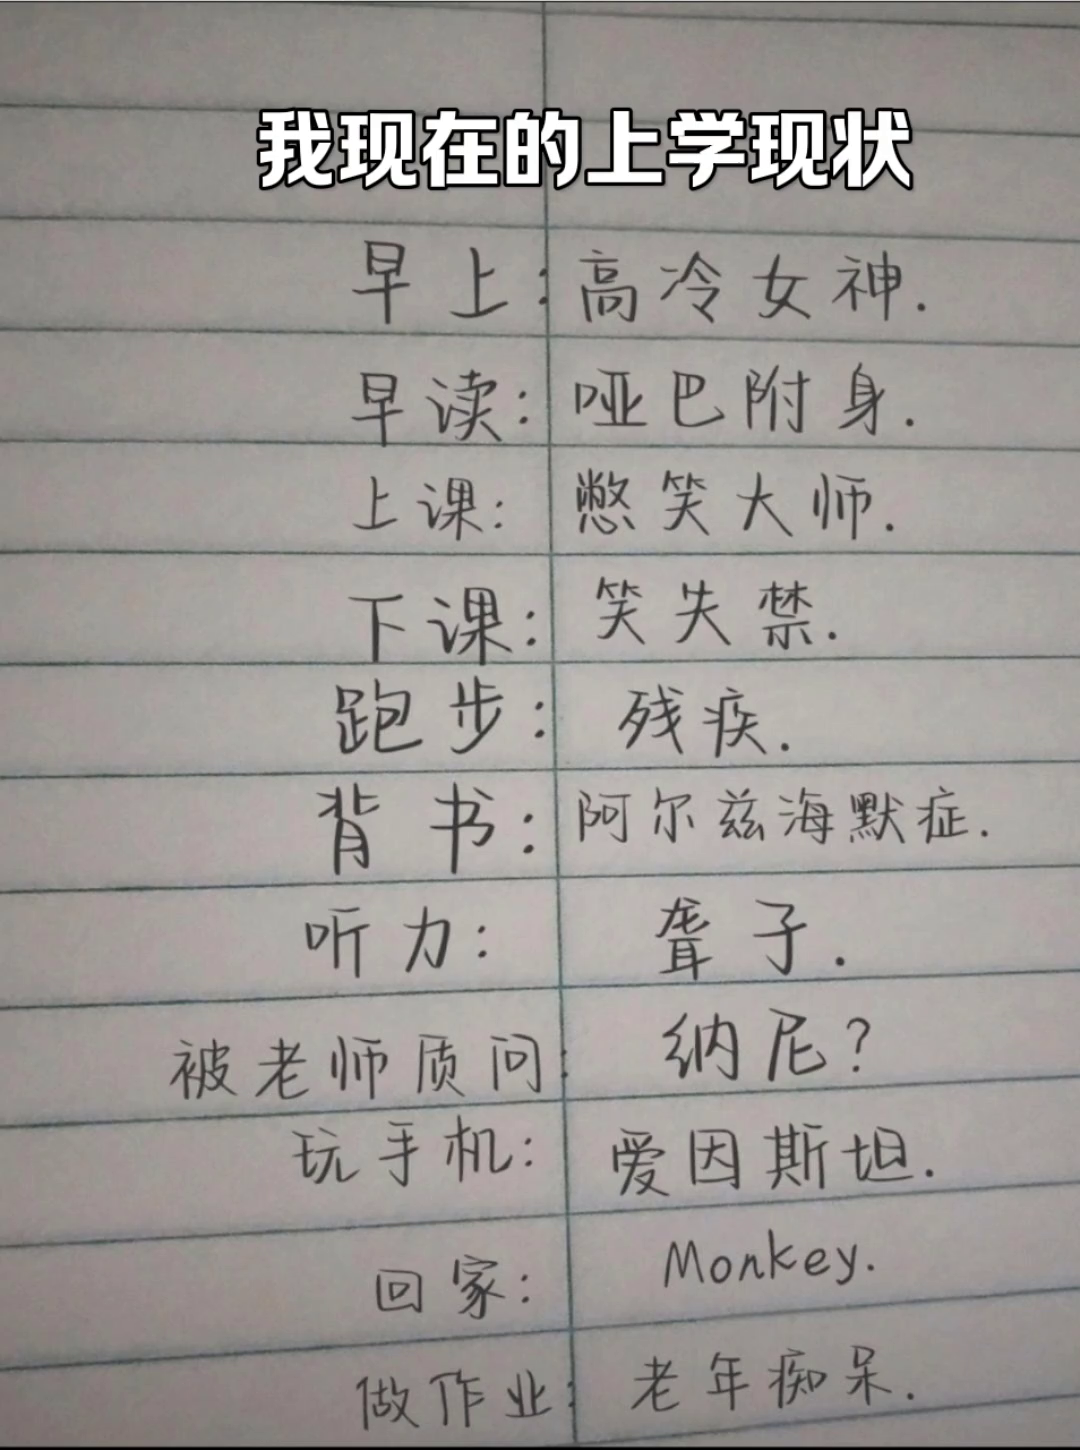 我现在的上学现状
早上:高冷女神.
早读:哑巴附身.
上课:憋笑大师.
下课:笑失禁.
跑步:残疾.
背书:阿尔兹海默症.
听力:聋子.
被老师质问:纳尼?
玩手机:爱因斯坦.
回家:Monkey.
做作业:老年痴呆.